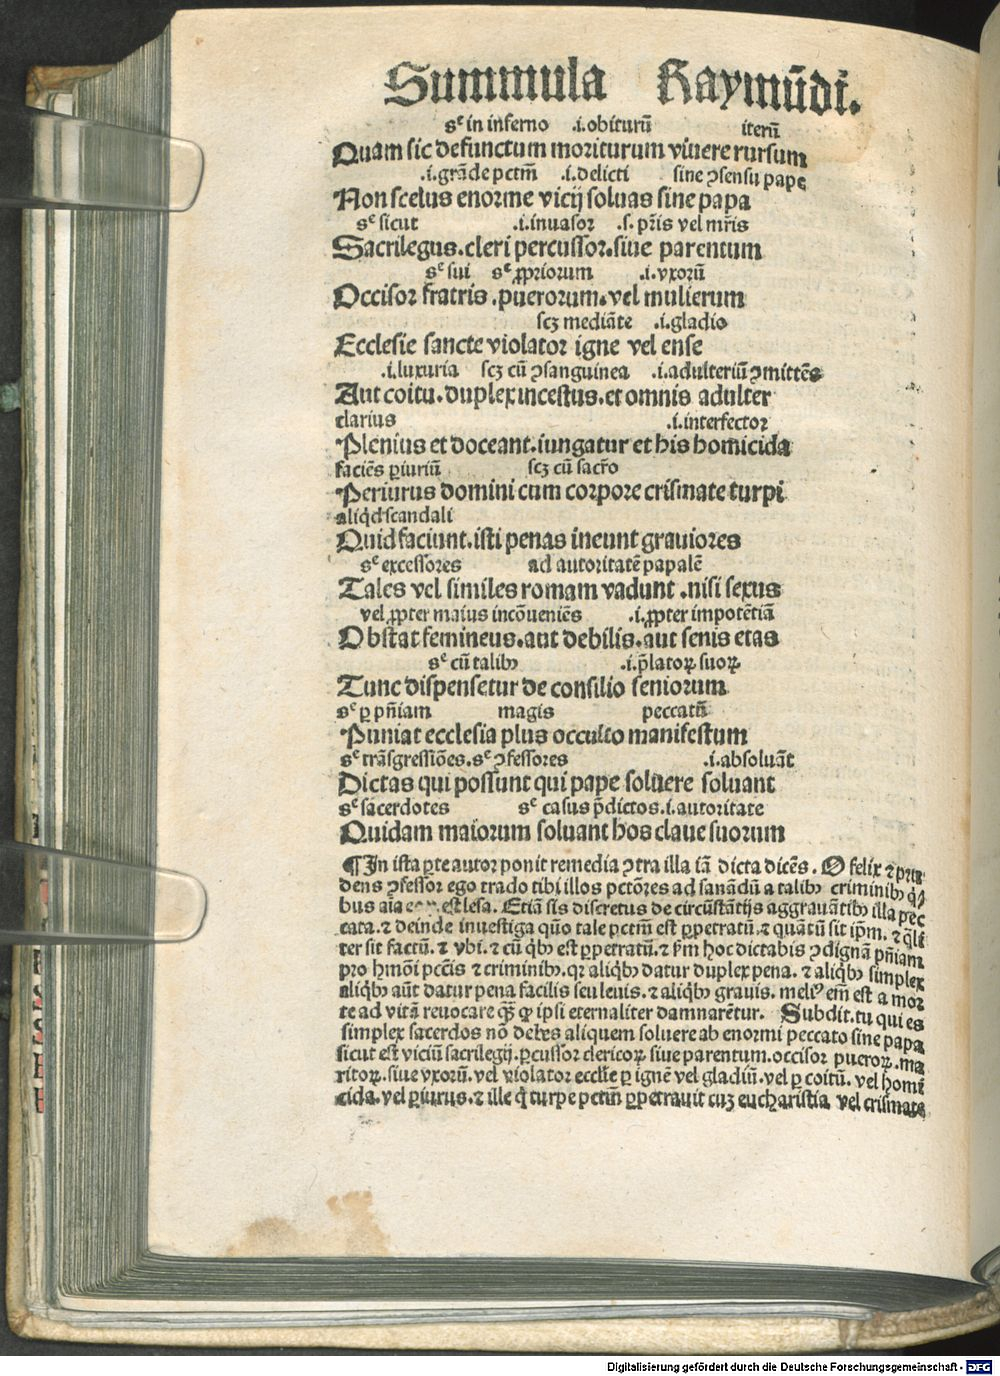 Summula Raymūdi.
sᶜ in inferno .i.obiturū iterū
Quam sic defunctum moriturum vivere rursum
.i.grāde pctm̄ .i.delicti sine ꝯsensu pape
Non scelus enorme vicij soluas sine papa
sᶜ sicut .i.inuasor .s. pr̄is vel mr̄is
Sacrilegus.cleri percussor.siue parentum
sᶜ sui sᶜ ꝓpriorum .i.vxorū
Occisor fratris .puerorum.vel mulierum
scꝫ mediāte .i.gladio
Ecclesie sancte violator igne vel ense
.i.luxuria scꝫ cū ꝯsanguinea .i.adulteriū ꝯmittēs
Aut coitu.duplex incestus.et omnis adulter
clarius .i.interfector
Plenius et doceant.iungatur et his homicida
faciēs ꝑiuriū scꝫ cū sacr̄o
Periurus domini cum corpore crismate turpi
aliqd̄ scandali
Quid faciunt.isti penas ineunt grauiores
sᶜ excessores ad autoritatē papalē
Tales vel similes romam vadunt .nisi sexus
vel ꝓpter maius incōueniēs .i.ꝓpter impotētiā
Obstat femineus.aut debilis.aut senis etas
sᶜ cū talibꝫ .i.p̄latoꝝ suoꝝ
Tunc dispensetur de consilio seniorum
sᶜ ꝑ pn̄iam magis peccatū
Puniat ecclesia plus occulto manifestum
sᶜ trāsgressiōes.sᶜ ꝯfessores .i.absoluāt
Dictas qui possunt qui pape soluere soluant
sᶜ sacerdotes sᶜ casus p̄dictos.i.autoritate
Quidam maiorum soluant hos claue suorum
¶In ista ꝑte autor ponit remedia ꝯtra illa iā dicta dicēs. O felix ⁊ pru
dens ꝯfessor ego trado tibi illos pctōres ad sanādū a talibꝫ criminibꝫ qͥ
bus aīa est lesa. Etiā sis discretus de circūstātijs aggrauātibꝫ illa pec
cata.⁊ deinde inuestiga quō tale pctm̄ est ꝑpetratū.⁊ quātū sit ip̄m. ⁊ qͣli
ter sit factū.⁊ vbi.⁊ cū qͥbꝫ est ꝑpetratū.⁊ ẜm hoc dictabis ꝯdignā pn̄iam
pro hmōi pctīs ⁊ criminibꝫ. qꝛ aliqͥbꝫ datur duplex pena. ⁊ aliqͥbꝫ simplex
aliqͥbꝫ aūt datur pena facilis seu leuis.⁊ aliqͥbꝫ grauis. meliꝰ em̄ est a mor
te ad vitā reuocare qꝫ̄ ꝙ ipsi eternaliter damnarētur. Subdit.tu qui es
simplex sacerdos nō debes aliquem soluere ab enormi peccato sine papa
sicut est viciū sacrilegij.ꝑcussor clericoꝝ siue parentum.occisor pueroꝝ.ma
ritoꝝ.siue vxorū.vel violator ecclie ꝑ ignē vel gladiū.vel ꝑ coitū. vel homi
cida.vel ꝑiurus.⁊ ille qͥ turpe pctm̄ ꝑpetrauit cuꝫ eucharistia vel crismate
Digitalisierung gefördert durch die Deutsche Forschungsgemeinschaft - DFG